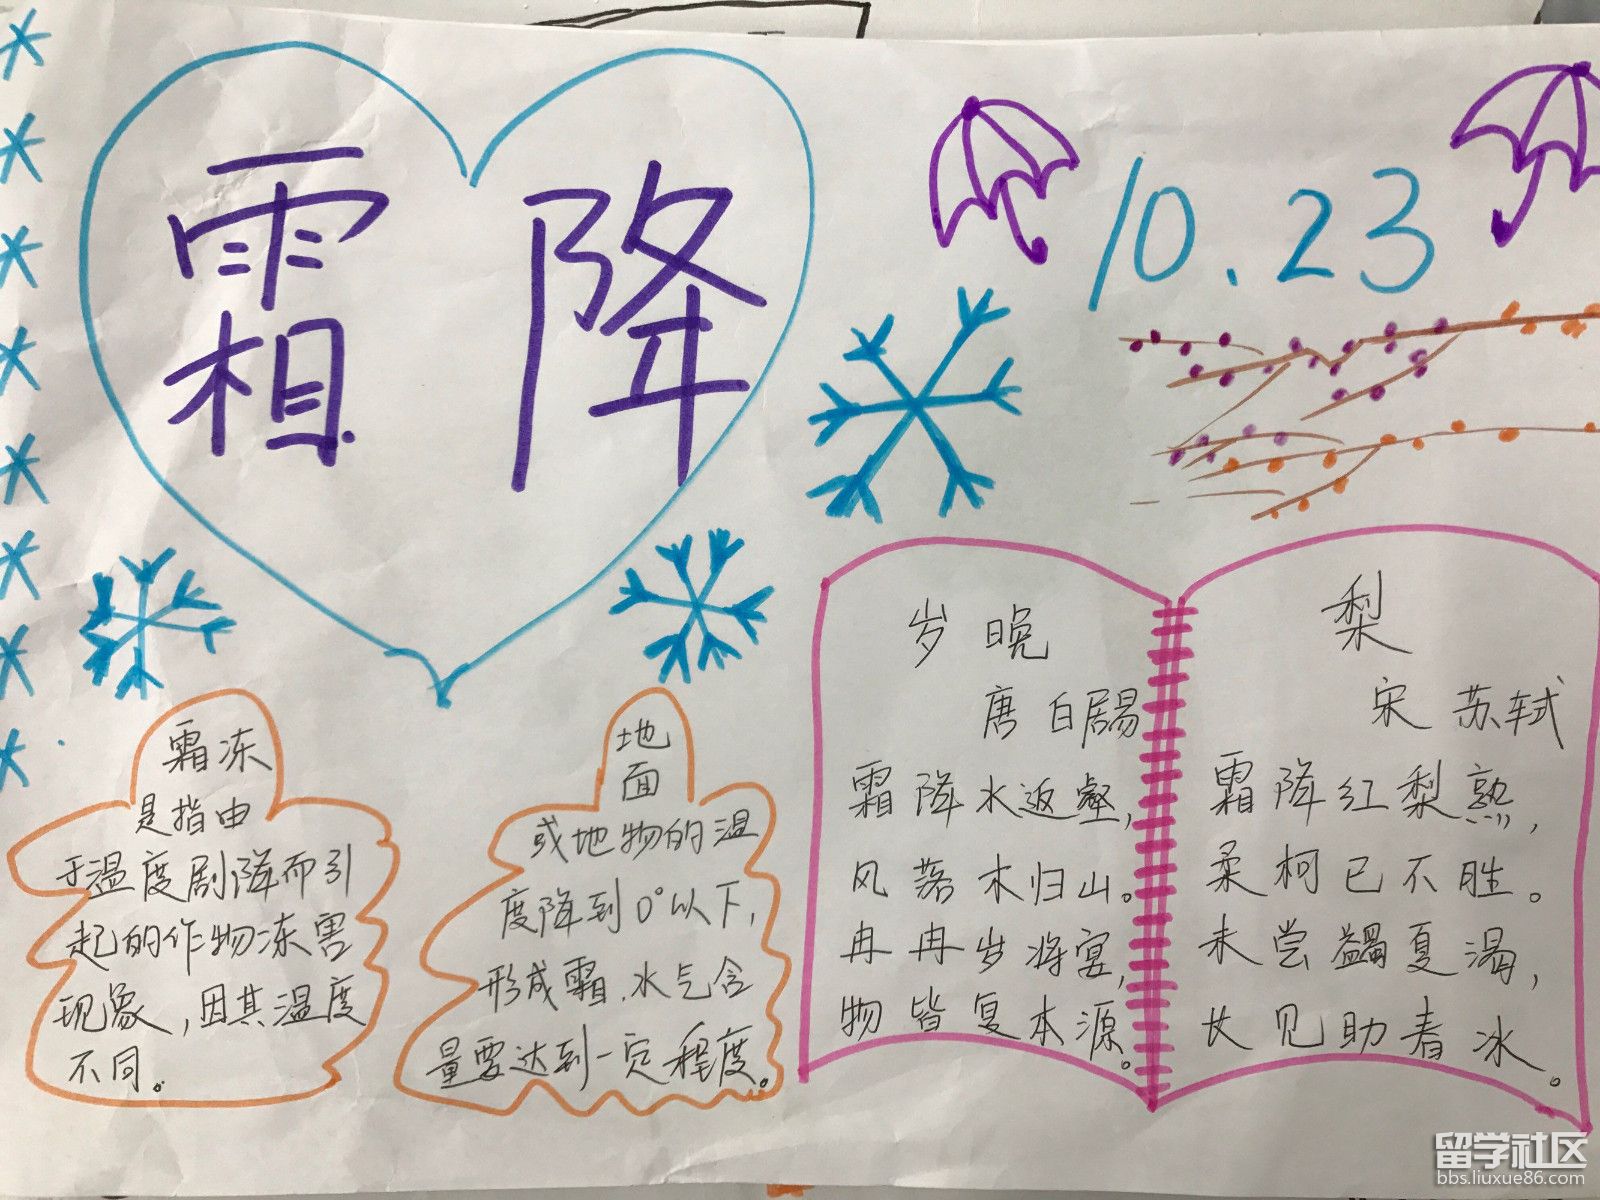 霜降
10.23
霜冻
是指由
于温度剧降而引
起的作物冻害
现象,因其温度
不同。
地
面
或地物的温
度降到0°以下,
形成霜.水气含
量要达到一定程度。
岁晚
唐 白居易
霜降水返壑,
风落木归山。
冉冉岁将宴,
物皆复本源。
梨
宋 苏轼
霜降红梨熟,
柔柯已不胜。
未尝蠲夏渴,
长见助春冰。
留学社区
bbs.liuxue86.com